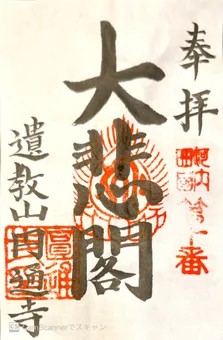 奉拝
河内西国第十番
大悲閣
遺教山円通寺
圓通
CamScannerでスキャン